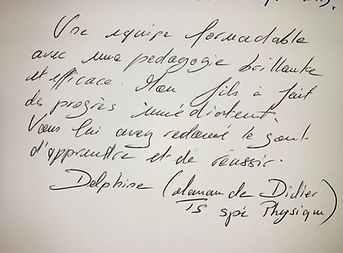 Une equipe formidable
avec une pedagogie brillante
et efficace. Mon fils à fait
des progrès immédiatent.
Vous lui avez redonné le gout
d'apprendre et de réussir.
Delphine (Maman de Didier
TS spé Physique)